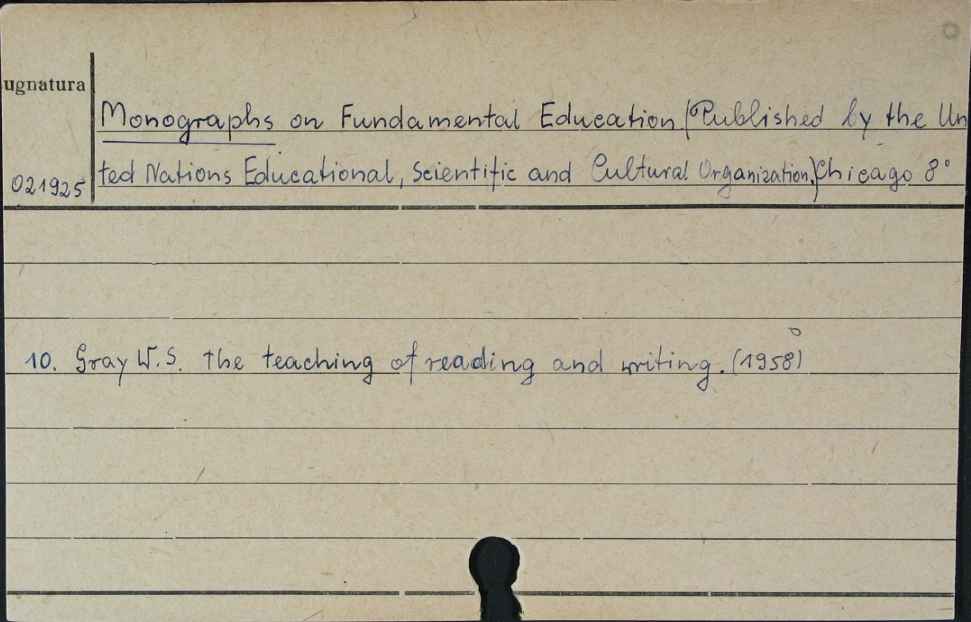 ugnatura
Monographs on Fundamental Education (Published by the Un
021925 ted Nations Educational, Scientific and Cultural Organization.) Chicago 8°
10. Gray W.S. The teaching of reading and writing. (1958)